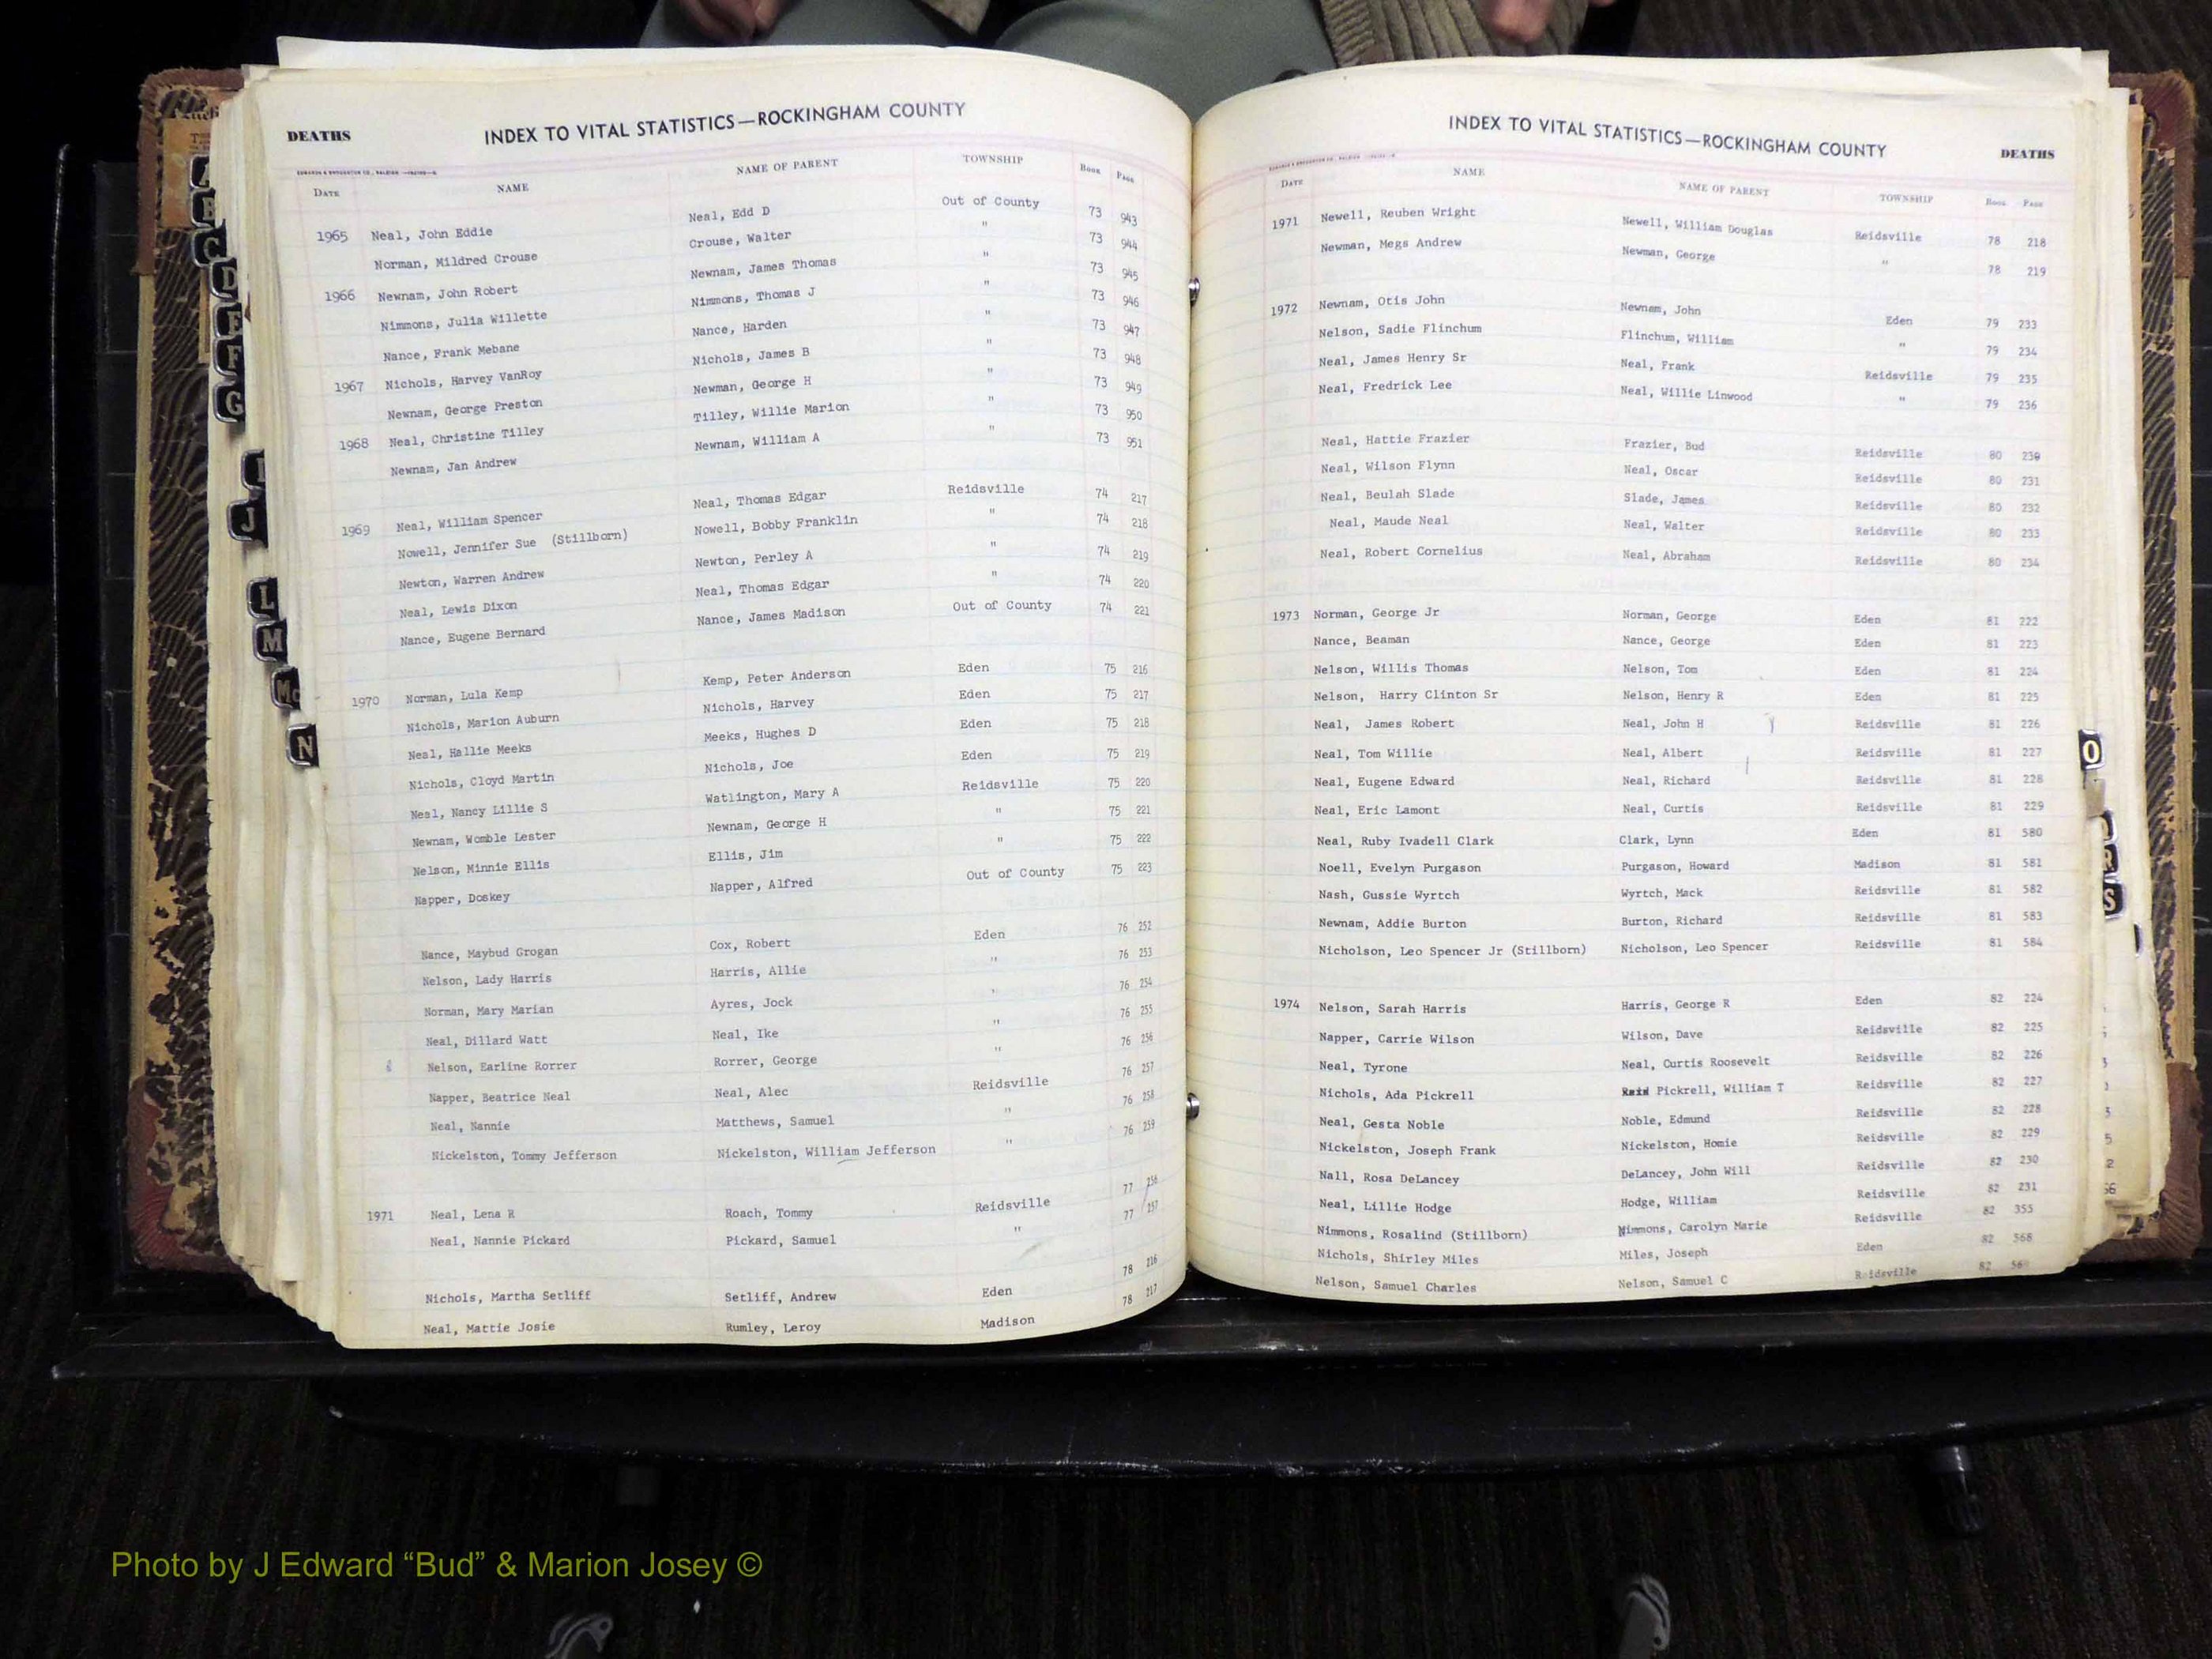 DEATHS INDEX TO VITAL STATISTICS—ROCKINGHAM COUNTY
DATE NAME NAME OF PARENT TOWNSHIP Book Page
1965 Neal, John Eddie Neal, Edd D Out of County 73 943
Norman, Mildred Crouse Crouse, Walter " 73 944
1966 Newnam, John Robert Newnam, James Thomas " 73 945
Nimmons, Julia Willette Nimmons, Thomas J " 73 946
Nance, Frank Mebane Nance, Harden " 73 947
1967 Nichols, Harvey VanRoy Nichols, James B " 73 948
Newnam, George Preston Newman, George H " 73 949
1968 Neal, Christine Tilley Tilley, Willie Marion " 73 950
Newnam, Jan Andrew Newnam, William A " 73 951
1969 Neal, William Spencer Neal, Thomas Edgar Reidsville 74 217
Nowell, Jennifer Sue (Stillborn) Nowell, Bobby Franklin " 74 218
Newton, Warren Andrew Newton, Perley A " 74 219
Neal, Lewis Dixon Neal, Thomas Edgar " 74 220
Nance, Eugene Bernard Nance, James Madison Out of County 74 221
1970 Norman, Lula Kemp Kemp, Peter Anderson Eden 75 216
Nichols, Marion Auburn Nichols, Harvey Eden 75 217
Neal, Hallie Meeks Meeks, Hughes D Eden 75 218
Nichols, Cloyd Martin Nichols, Joe Eden 75 219
Neal, Nancy Lillie S Watlington, Mary A Reidsville 75 220
Newnam, Womble Lester Newnam, George H " 75 221
Nelson, Minnie Ellis Ellis, Jim " 75 222
Napper, Doskey Napper, Alfred Out of County 75 223
Nance, Maybud Grogan Cox, Robert Eden 76 252
Nelson, Lady Harris Harris, Allie " 76 253
Norman, Mary Marian Ayres, Jock " 76 254
Neal, Dillard Watt Neal, Ike " 76 255
Nelson, Earline Rorrer Rorrer, George " 76 256
Napper, Beatrice Neal Neal, Alec Reidsville 76 257
Neal, Nannie Matthews, Samuel " 76 258
Nickelston, Tommy Jefferson Nickelston, William Jefferson " 76 259
1971 Neal, Lena R Roach, Tommy Reidsville 77 256
Neal, Nannie Pickard Pickard, Samuel " 77 257
Nichols, Martha Setliff Setliff, Andrew Eden 78 216
Neal, Mattie Josie Rumley, Leroy Madison 78 217
INDEX TO VITAL STATISTICS—ROCKINGHAM COUNTY DEATHS
DATE NAME NAME OF PARENT TOWNSHIP Book Page
1971 Newell, Reuben Wright Newell, William Douglas Reidsville 78 218
Newman, Megs Andrew Newman, George " 78 219
1972 Newnam, Otis John Newnam, John Eden 79 233
Nelson, Sadie Flinchum Flinchum, William " 79 234
Neal, James Henry Sr Neal, Frank Reidsville 79 235
Neal, Fredrick Lee Neal, Willie Linwood " 79 236
Neal, Hattie Frazier Frazier, Bud Reidsville 80 230
Neal, Wilson Flynn Neal, Oscar Reidsville 80 231
Neal, Beulah Slade Slade, James Reidsville 80 232
Neal, Maude Neal Neal, Walter Reidsville 80 233
Neal, Robert Cornelius Neal, Abraham Reidsville 80 234
1973 Norman, George Jr Norman, George Eden 81 222
Nance, Beaman Nance, George Eden 81 223
Nelson, Willis Thomas Nelson, Tom Eden 81 224
Nelson, Harry Clinton Sr Nelson, Henry R Eden 81 225
Neal, James Robert Neal, John H Reidsville 81 226
Neal, Tom Willie Neal, Albert Reidsville 81 227
Neal, Eugene Edward Neal, Richard Reidsville 81 228
Neal, Eric Lamont Neal, Curtis Reidsville 81 229
Neal, Ruby Ivadell Clark Clark, Lynn Eden 81 580
Noell, Evelyn Purgason Purgason, Howard Madison 81 581
Nash, Gussie Wyrtch Wyrtch, Mack Reidsville 81 582
Newnam, Addie Burton Burton, Richard Reidsville 81 583
Nicholson, Leo Spencer Jr (Stillborn) Nicholson, Leo Spencer Reidsville 81 584
1974 Nelson, Sarah Harris Harris, George R Eden 82 224
Napper, Carrie Wilson Wilson, Dave Reidsville 82 225
Neal, Tyrone Neal, Curtis Roosevelt Reidsville 82 226
Nichols, Ada Pickrell Pickrell, William T Reidsville 82 227
Neal, Gesta Noble Noble, Edmund Reidsville 82 228
Nickelston, Joseph Frank Nickelston, Homie Reidsville 82 229
Nall, Rosa DeLancey DeLancey, John Will Reidsville 82 230
Neal, Lillie Hodge Hodge, William Reidsville 82 231
Nimmons, Rosalind (Stillborn) Nimmons, Carolyn Marie Reidsville 82 355
Nichols, Shirley Miles Miles, Joseph Eden 82 568
Nelson, Samuel Charles Nelson, Samuel C Reidsville 82
B
C
D
E
F
G
I
J
L
M
Mc
N
O
R
S
Photo by J Edward “Bud” & Marion Josey ©